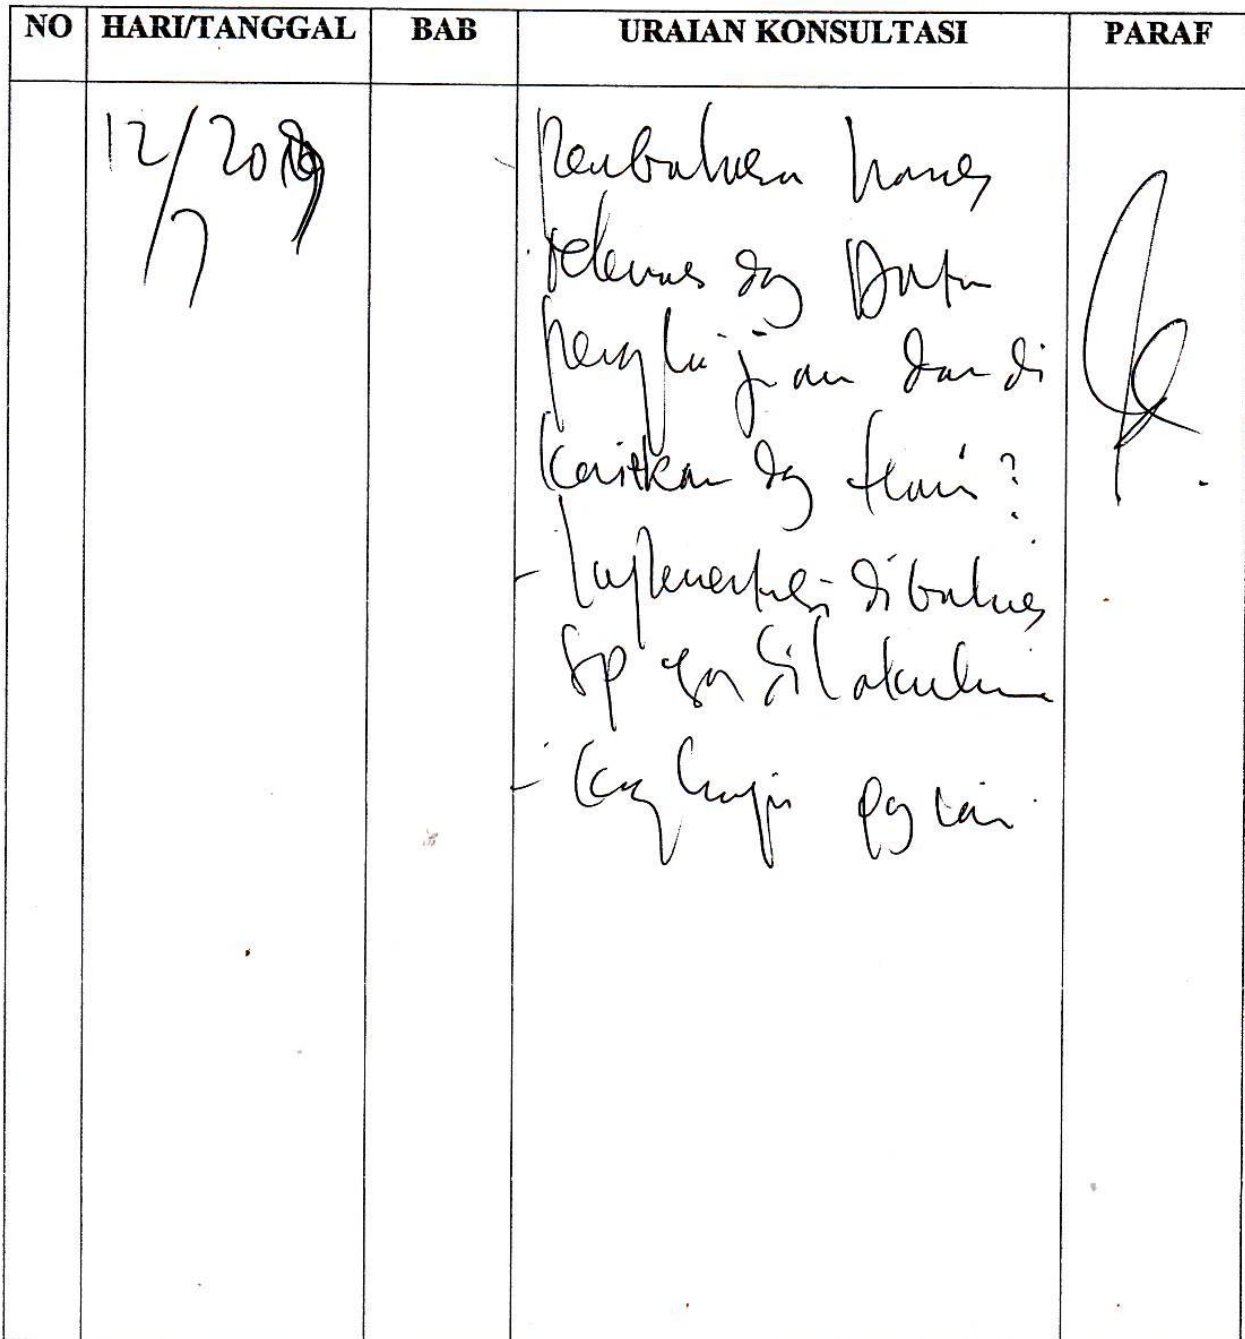 NO HARI/TANGGAL BAB URAIAN KONSULTASI PARAF
12/7 2019
- Pembahasan harus
relevan dg Data
pengkajian dan di
kaitkan dg teori?
- Implementasi dibahas
Sp yg dilakukan